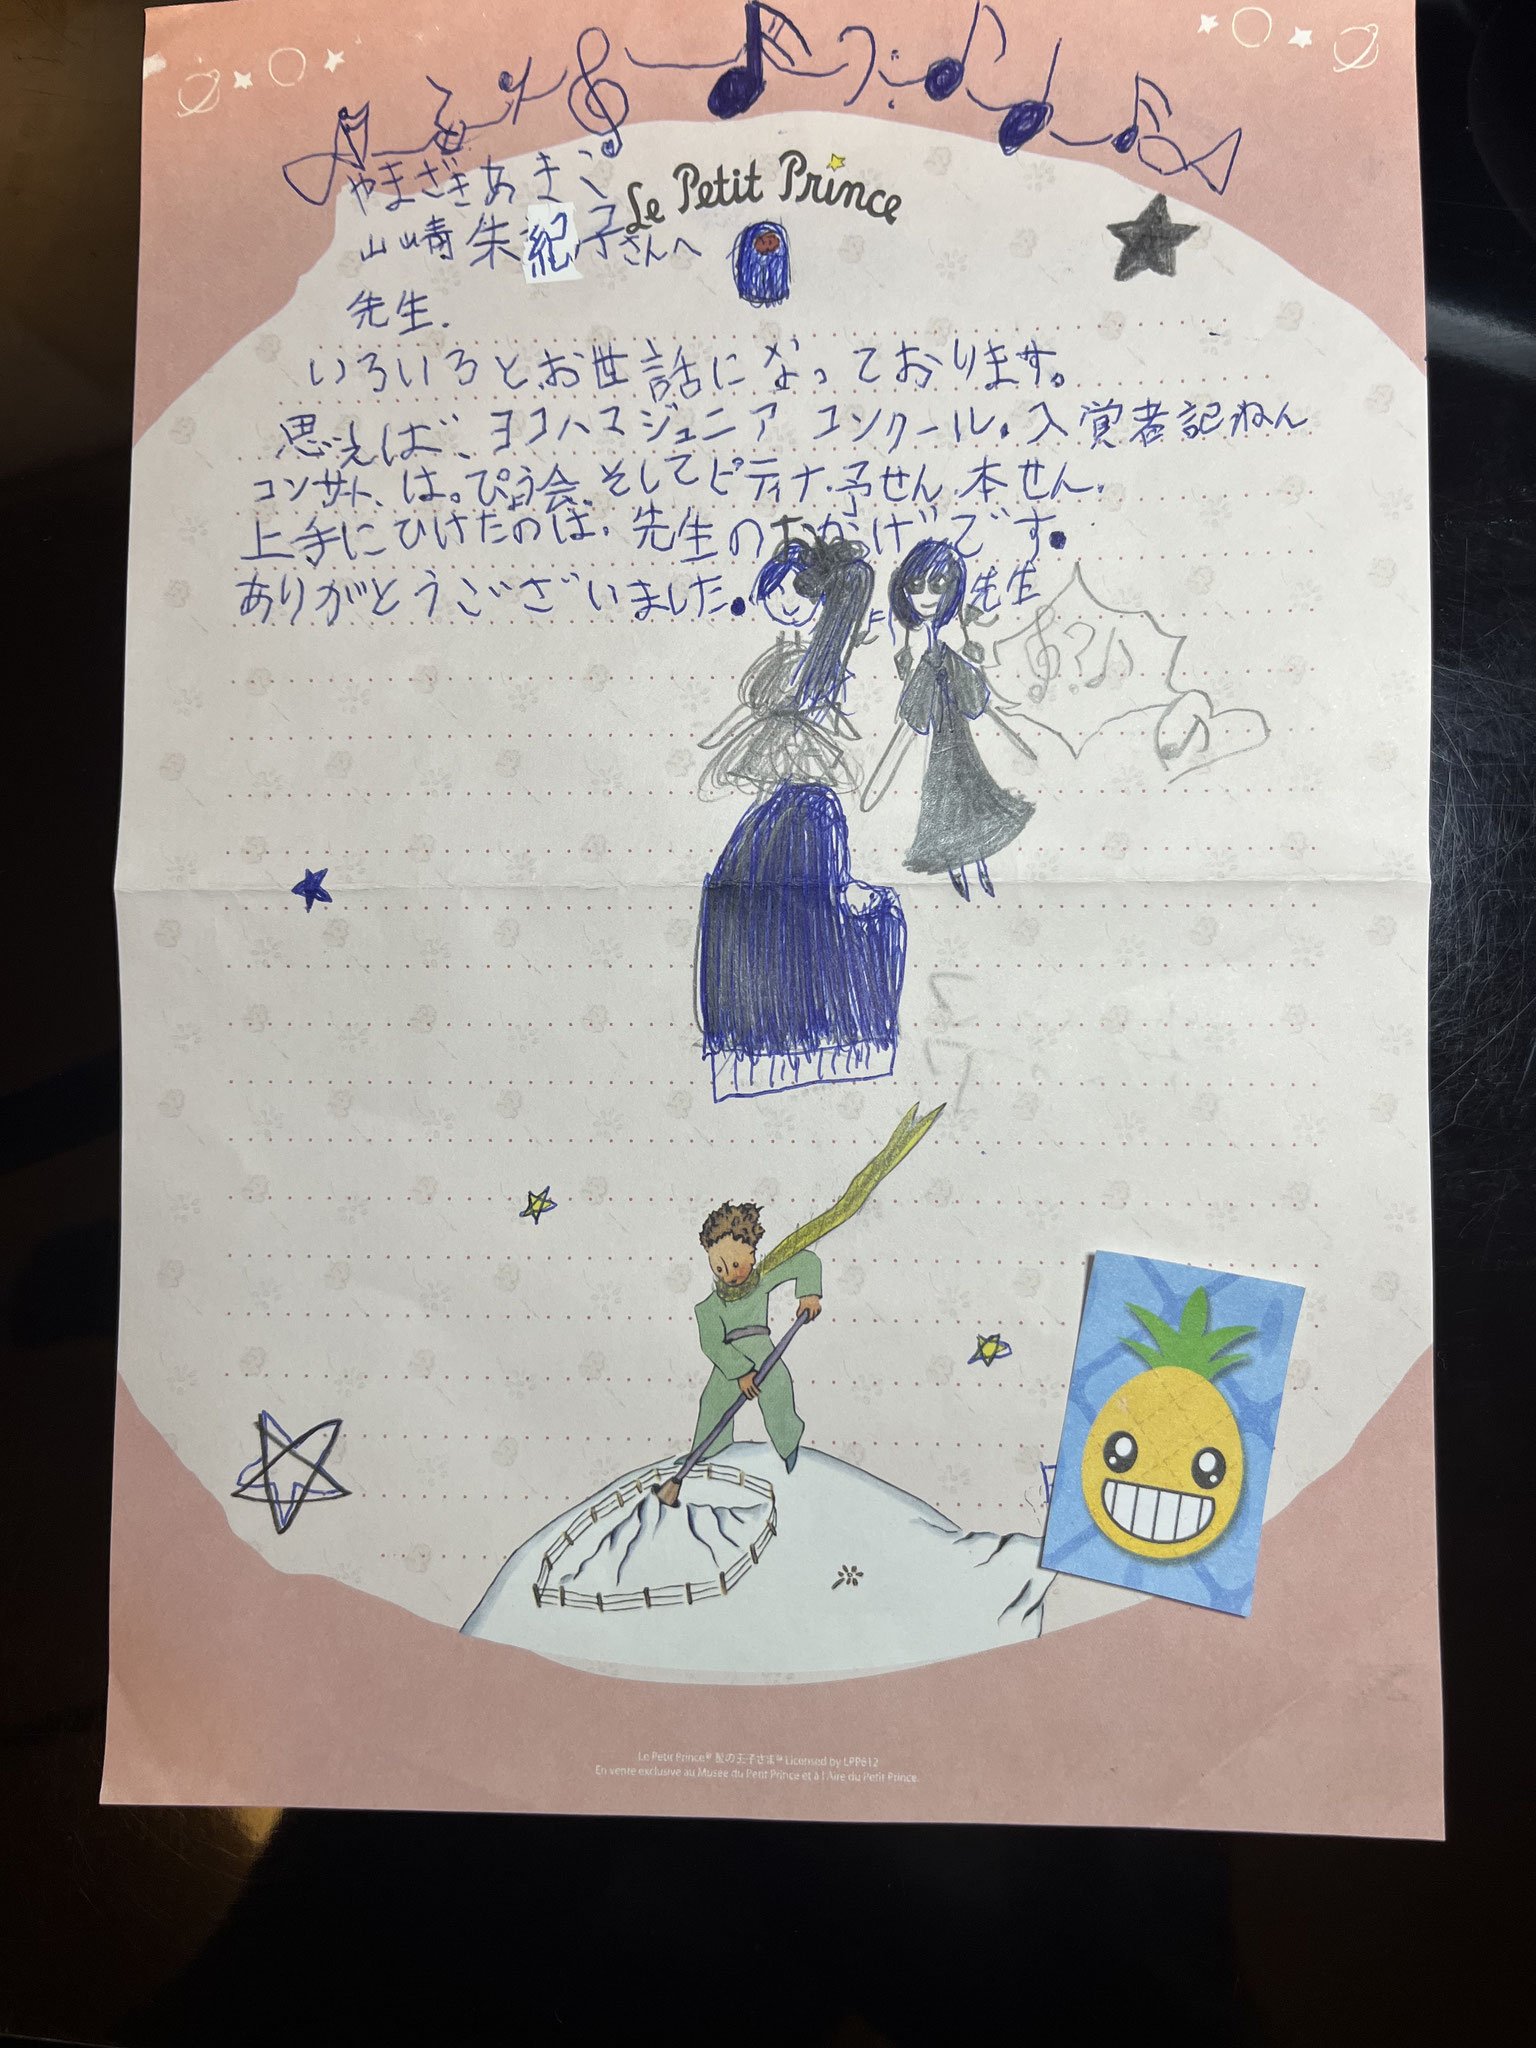 やまざきあきこ
Le Petit Prince
山崎朱紀子さんへ
先生.
いろいろとお世話になっております。
思えば、ヨコハマジュニア コンクール。入賞者記ねん
コンサート、はっぴょう会、そしてピティナ・予せん、本せん、
上手にひけたのは、先生のおかげです。
ありがとうございました。
先生
Le Petit Prince® 星の王子さま® Licensed by LPP612
En vente exclusive au Musée du Petit Prince et à l'Aire du Petit Prince.